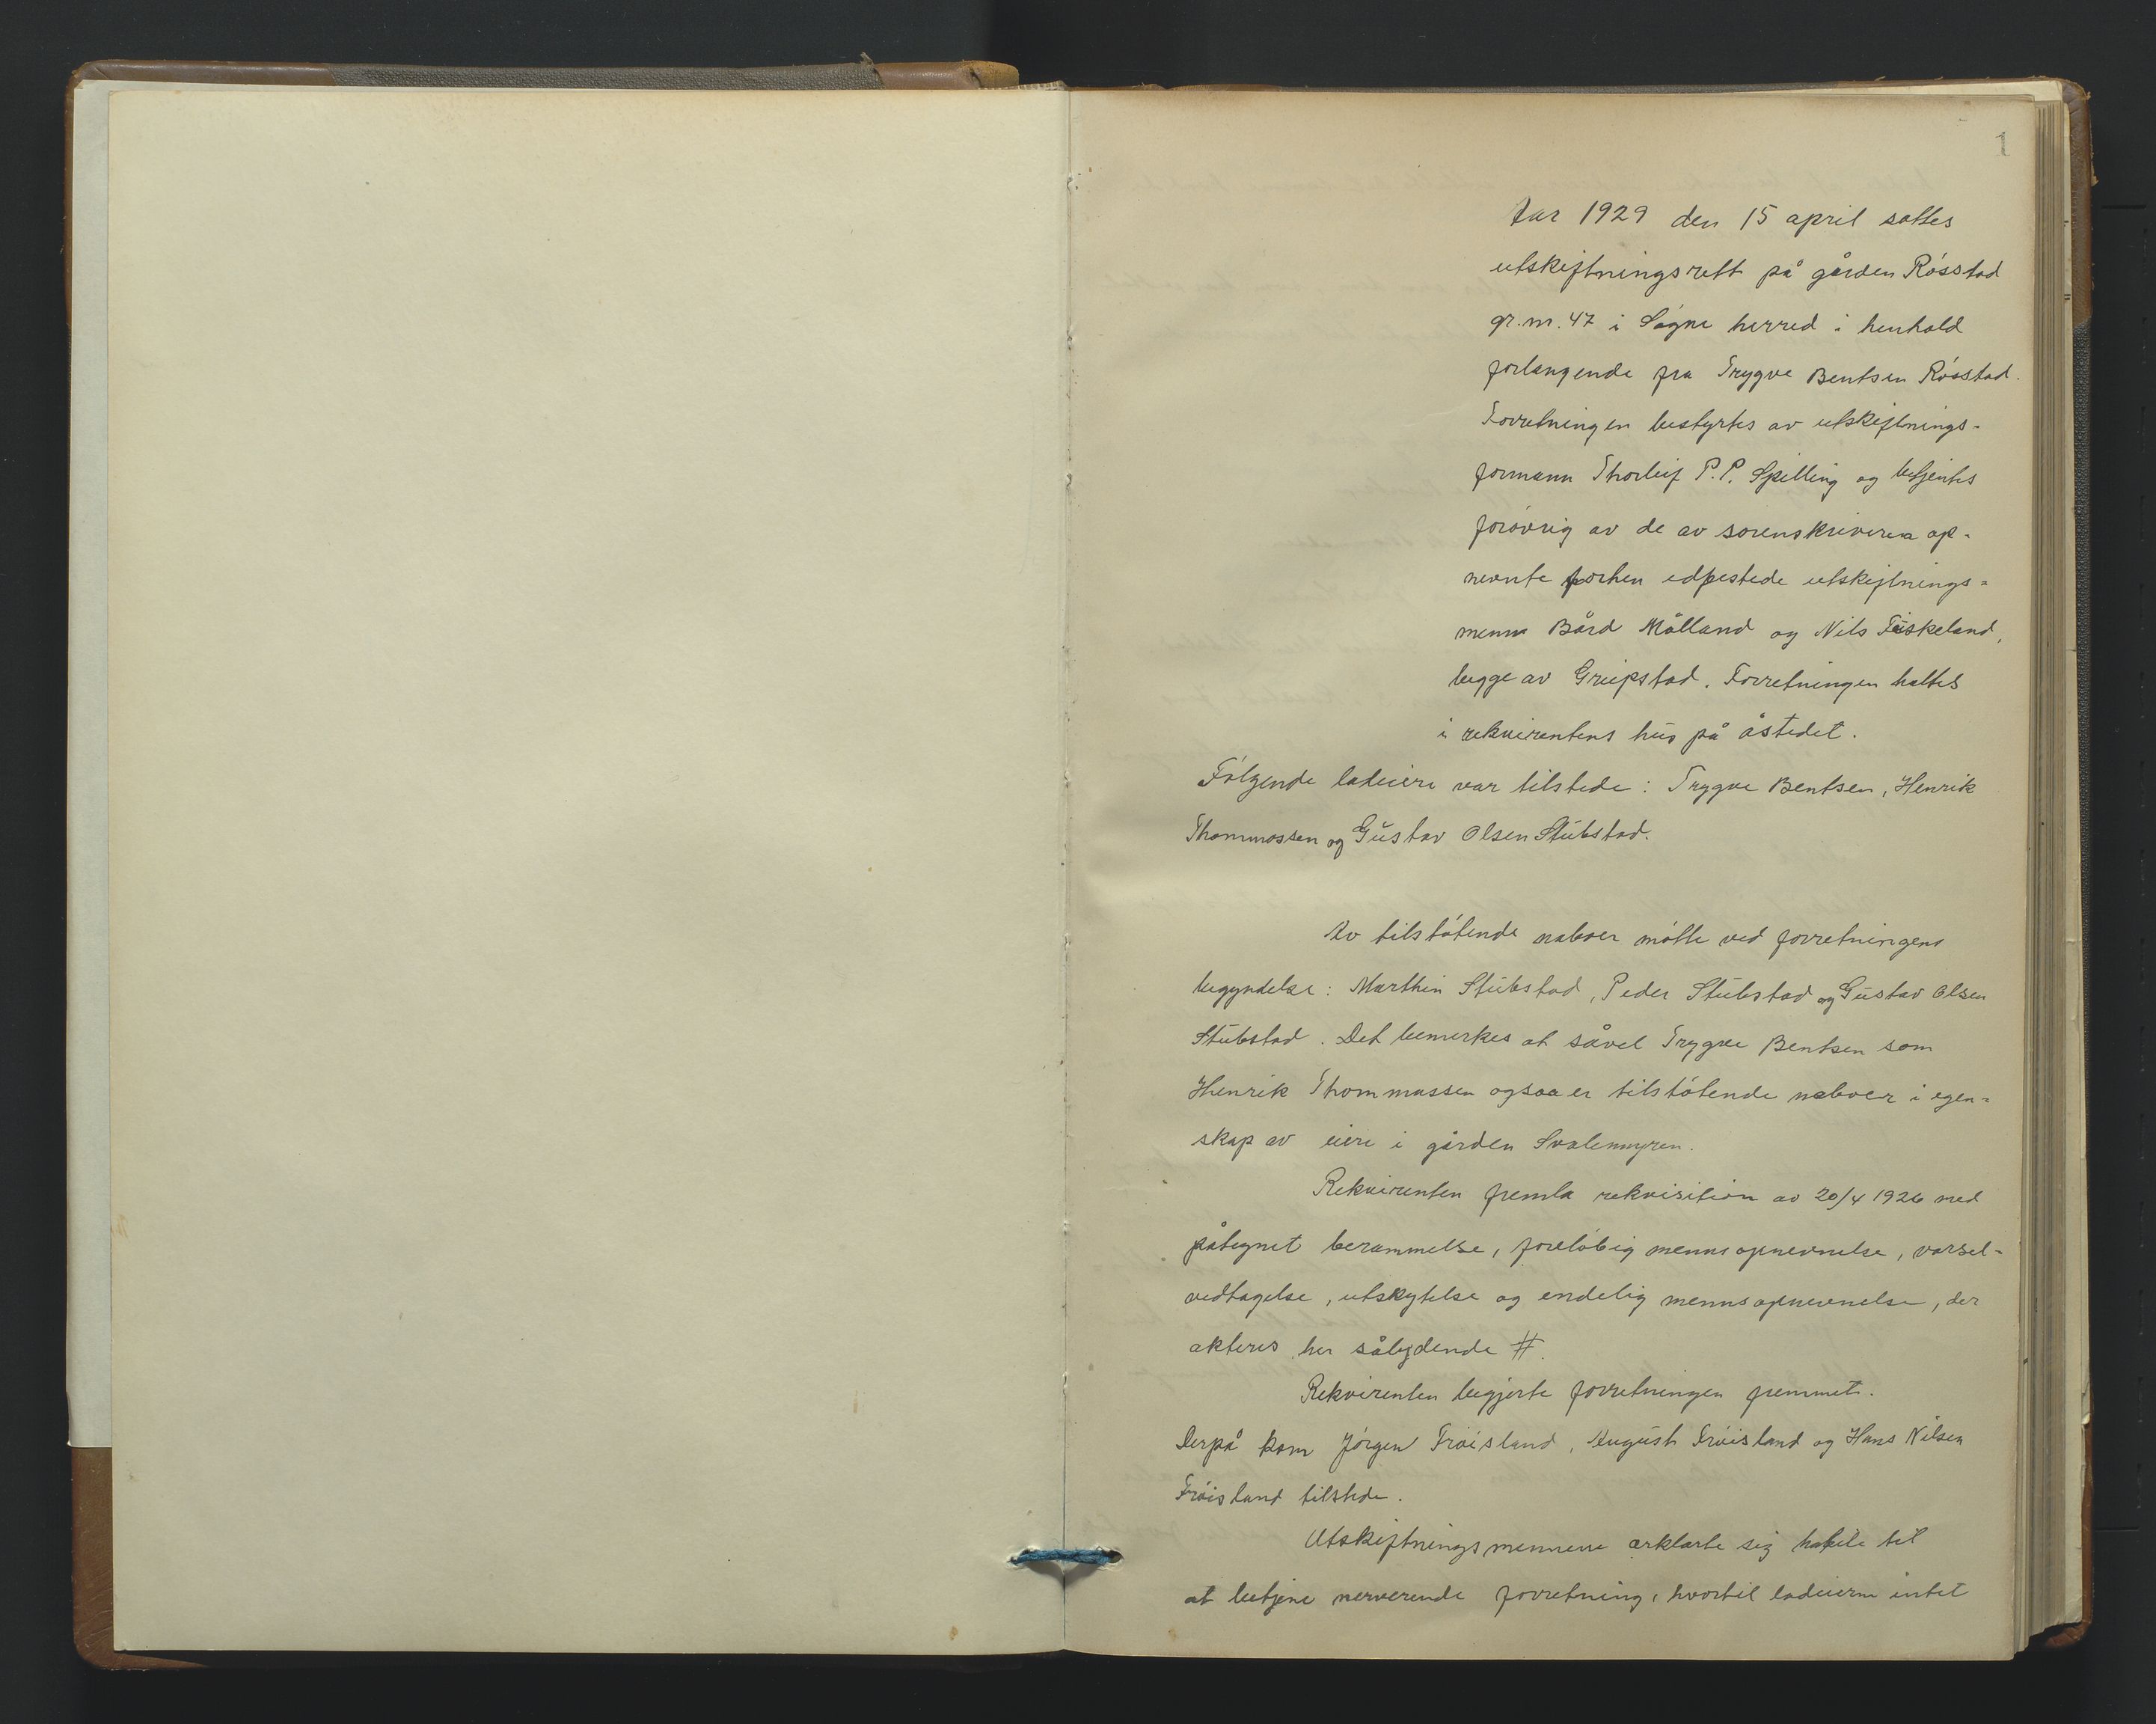 1
Aar 1929 den 15 april sattes
utskiftningsrett på gården Rósstad
gr.nr. 47 i Sógne herred i henhold
forlangende fra Trygve Bentsen Rósstad.
Forretningen bestyrtes av utskiftnings-
formann Thorleif P.P. Spilling og betjentes
foróvrig av de av sorenskriveren op-
nevnte forhen edfestede utskiftnings-
menn Bård Mólland og Nils Fuskeland,
begge av Greipstad. Forretningen holtes
i rekvirentens hus på åstedet.
Fólgende lodeiere var tilstede: Trygve Bentsen, Henrik
Thommassen og Gustav Olsen Stubstad.
Av tilstótende naboer mótte ved forretningens
begyndelse: Marthin Stubstad, Peder Stubstad og Gustav Olsen
Stubstad. Det bemerkes at såvel Trygve Bentsen som
Henrik Thommassen ogsaa er tilstótende naboer i egen-
skap av eiere i gården Svalemyren.
Rekvirenten fremla rekvisition av 20/4 1926 med
påtegnet berammelse, foreløbig mennsopnevnelse, varsel-
vedtagelse, utskytelse og endelig mennsopnevnelse, der
akteres her sålydende #.
Rekvirenten begjerte forretningen fremmet.
Derpå kom Jórgen Tróisland, August Tróisland og Hans Nilsen
Tróisland tilstede.
Utskiftningsmennene erklarte sig habile til
at betjene nerverende forretning, hvortil lodeierne intet